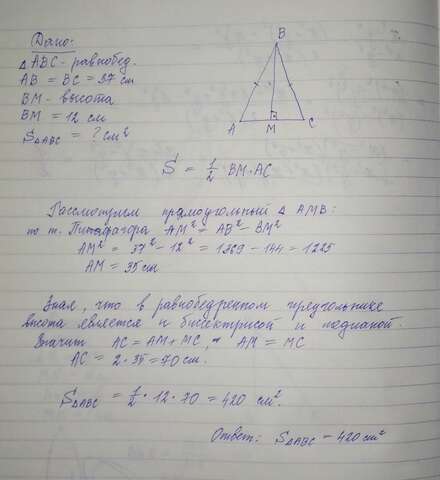 Дано:
△ABC - равнобед.
AB = BC = 37 см
BM - высота
BM = 12 см
S△ABC = ? см²
B
A
M
C
S = 1/2 BM·AC
Рассмотрим прямоугольный △ AMB:
по т. Пифагора AM² = AB² - BM²
AM² = 37² - 12² = 1369 - 144 = 1225
AM = 35 см
Зная, что в равнобедренном треугольнике
высота является и биссектрисой и медианой.
Значит AC = AM + MC, AM = MC
AC = 2·35 = 70 см.
S△ABC = 1/2 · 12 · 70 = 420 см².
Ответ: S△ABC - 420 см²